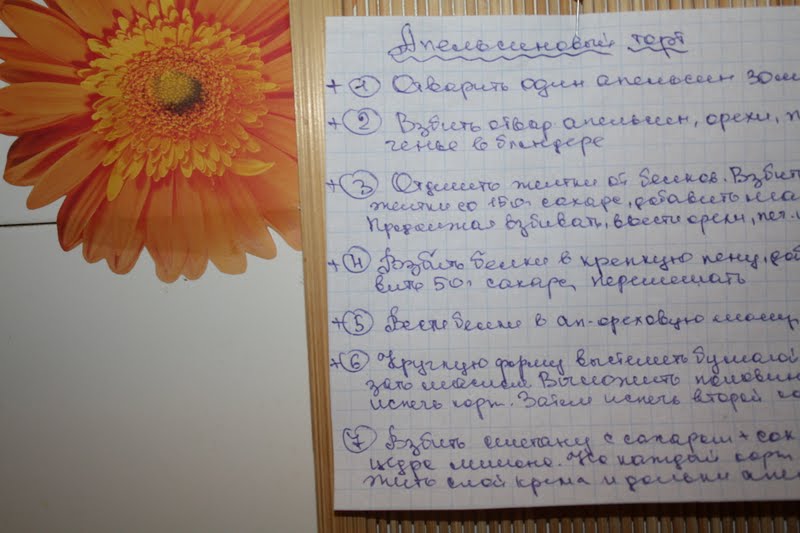 Апельсиновый торт
+ 1 Отварить один апельсин 30
+ 2 Взбить отвар. апельсин, орехи,
ченье в блендере
+ 3 Отделить желтки от белков. Взбить
желтки со 150г сахара, добавить
Продолжая взбивать, ввести орехи,
+ 4 Взбить белки в крепкую пену, доб
вить 50г сахара, перемешать
+ 5 белки в ап-ореховую массу
+ 6 Круглую форму выстелить бумагой
маслом. Выложить половин
испечь корж. Затем испечь второй
7 Взбить сметану с сахаром + сок
цедра лимона. На каждый корж
жить слой крема и дольки апе